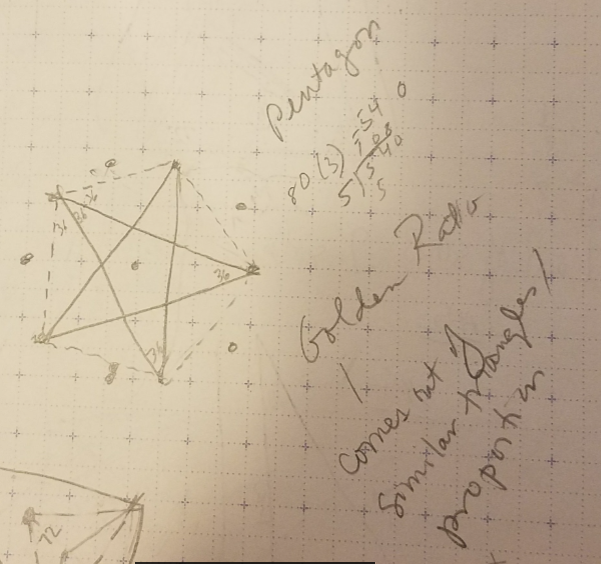 Pentagon
80 (3)
540
5
Golden Ratio
comes out of
similar triangles/
proportion
36
36
36
36
72